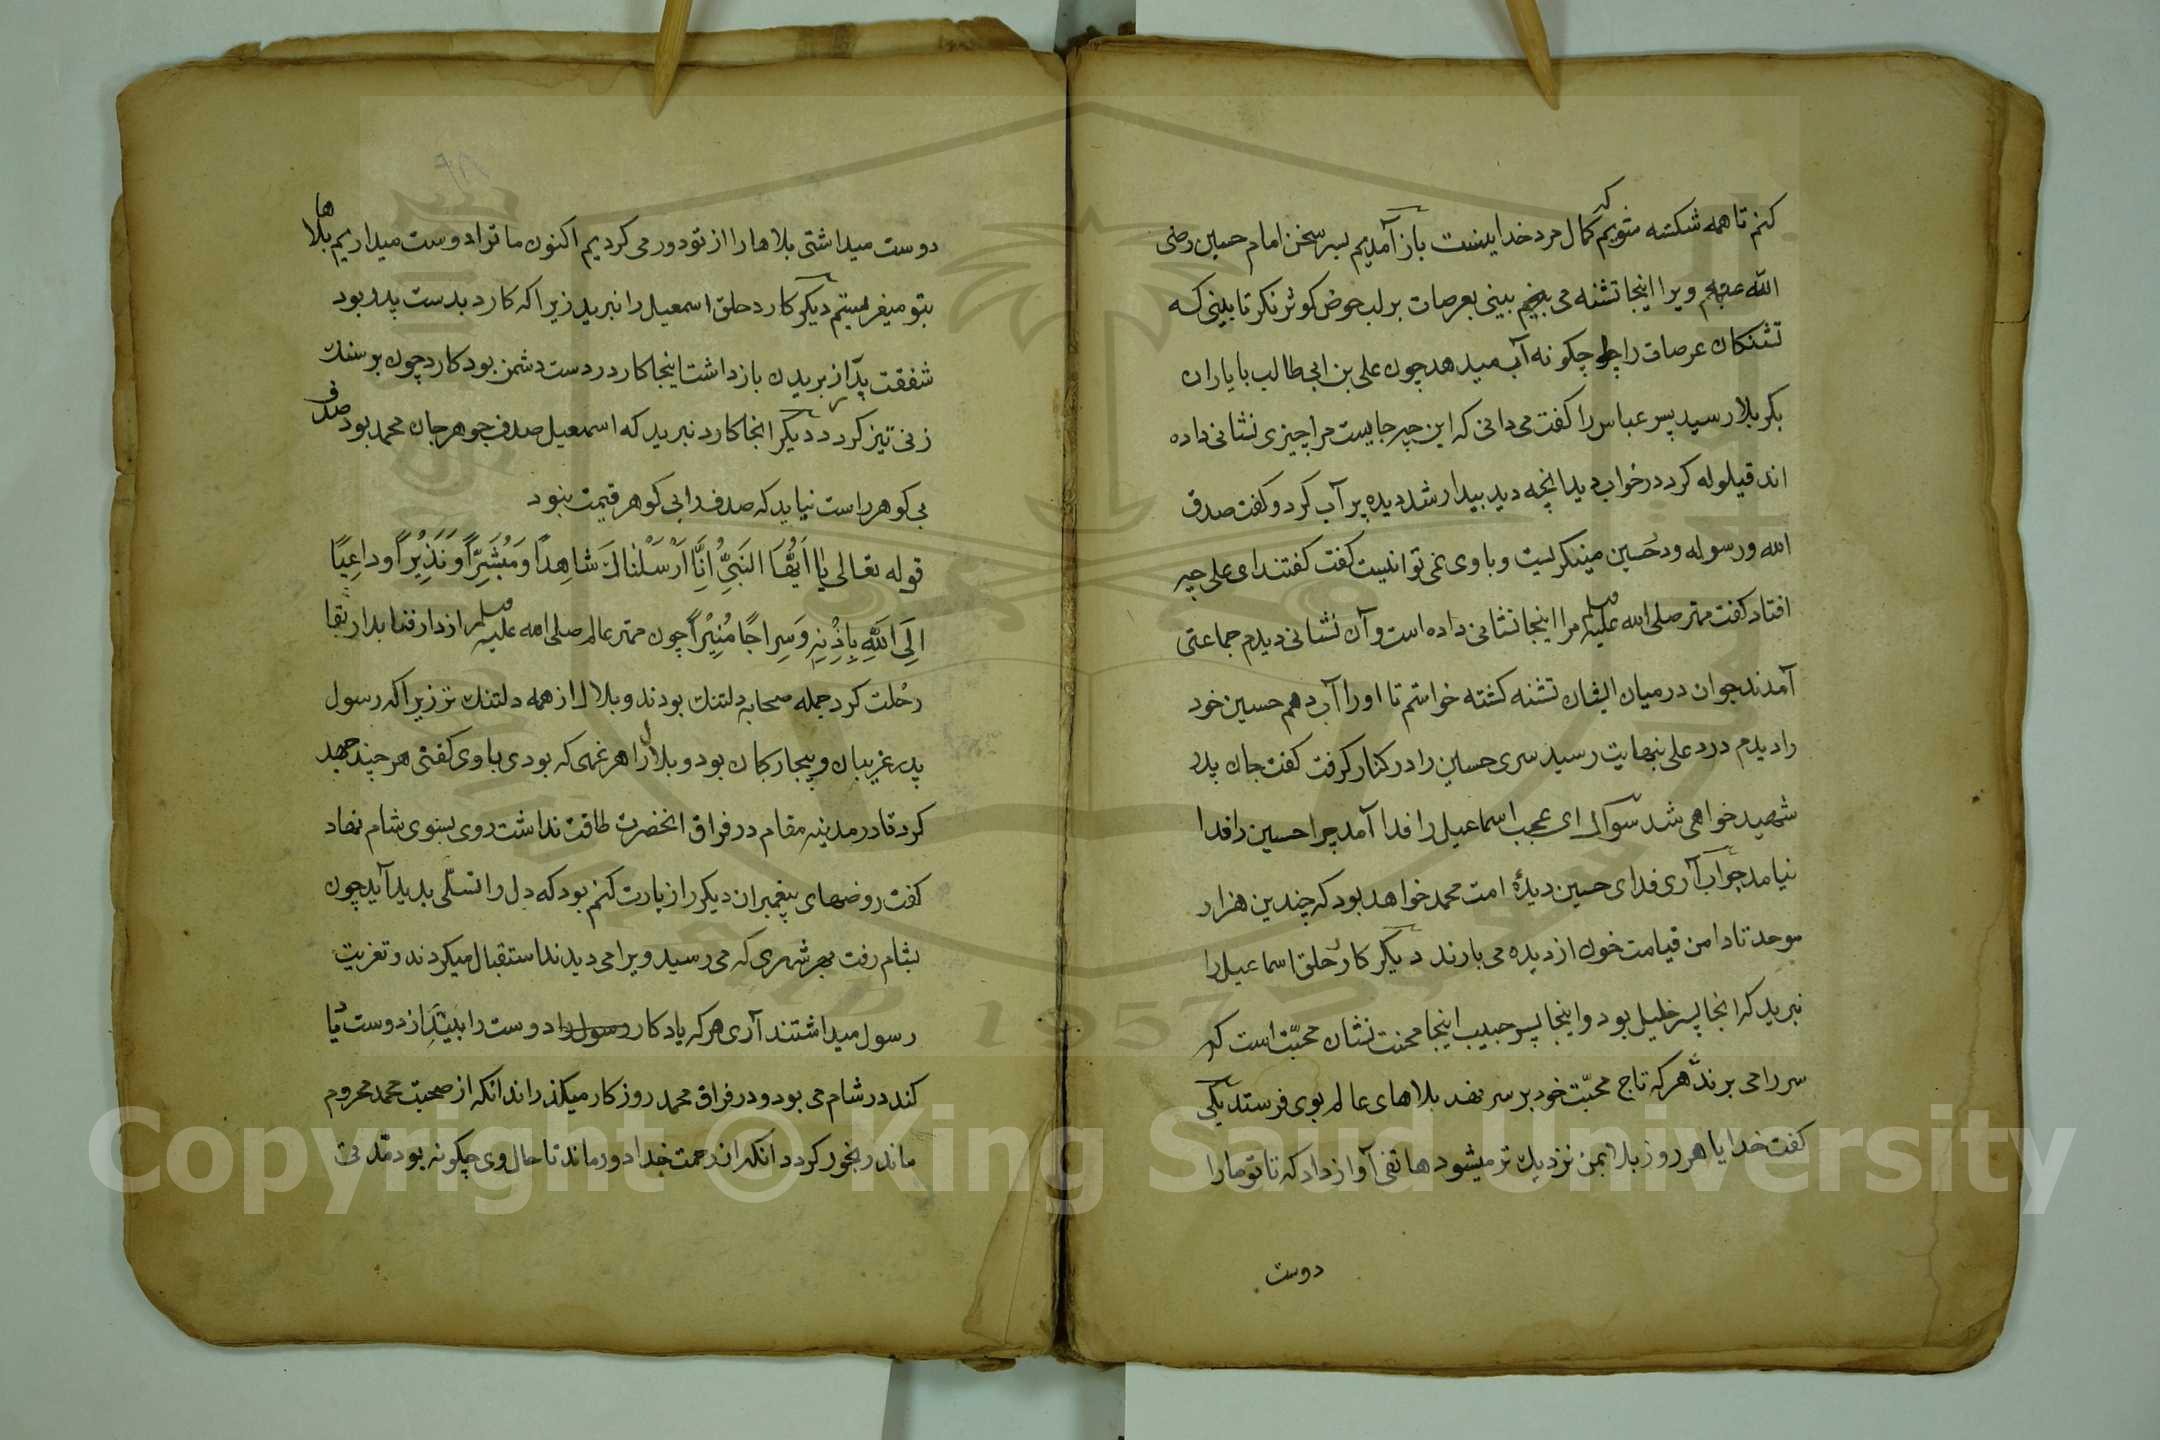 کنم تا همه شکسته شویم که کمال مرد خدا اینست باز آمدیم بسر سخن امام حسین رضی
الله عنهم ویرا اینجا تشنه می بینم بینی بعرصات بر لب حوض کوثر نکر تا بینی که
تشنکان عرصات را چکونه آب میدهد چون علی بن ابی طالب با یاران
بکربلا رسید پسر عباس را کفت می دانی که این چه جایست مرا چیزی نشانی داده
اند قیلوله کرد در خواب دید انچه دید بیدار شد دیده پر آب کرد و کفت صدق
الله و رسوله و در حسین مینکریست و با وی نمی توانست کفت کفتند ای علی چه
افتاد کفت مهتر صلی الله علیه وسلم مرا اینجا نشانی داده است و آن نشانی دیدم جماعتی
آمدند جوان در میان ایشان تشنه کشته خواستم تا او را آب دهم حسین خود
را دیدم درد علی بنهایت رسید سری حسین را در کنار کرفت کفت جان پدر
شهید خواهی شد سوال ای عجب اسماعیل را فدا آمد چرا حسین را فدا
نیامد جواب آری فدای حسین دیدهٔ امت محمد خواهد بود که چندین هزار
موحد تا دامن قیامت خون از دیده می بارند دیکر کارد حلق اسماعیل را
نبرید که انجا پسر خلیل بود و اینجا پسر حبیب اینجا محنت نشان محبّت است که
سر را می برند هر که تاج محبّت خود بر سر نهد بلاهای عالم بوی فرستد یکی
کفت خدایا هر روز بلا بمن نزدیک تر میشود هاتفی آواز داد که تا تو ما را
دوست
دوست میداشتی بلاها را از تو دور می کردیم اکنون ما ترا دوست میداریم بلاها
بتو میفرستیم دیکر کارد حلق اسمعیل را نبرید زیرا که کارد بدست پدر بود
شفقت پدر از بریدن باز داشت اینجا کارد در دست دشمن بود کارد چون بر سنک
زنی تیز کردد دیکر انجا کارد نبرید که اسمعیل صدف جوهر جان محمد بود صدف
بی کوهر راست نیاید که صدف را بی کوهر قیمت نبود
قوله تعالی یَا اَیُّهَا النَبِیُّ اِنَّا اَرْسَلْنَاكَ شَاهِدًا وَمُبَشِّرًا وَنَذِیْرًا وداعِیًا
اِلَی اللّٰهِ بِاِذْنِهِ وَسِراجًا مُنِیْرًا چون مهتر عالم صلی الله علیه وسلم از دار فنا بدار بقا
رحلت کرد جمله صحابه دلتنك بودند و بلال از همه دلتنك تر زیرا که رسول
پدر غریبان و بیچارکان بود و بلال را هر غمی که بودی باوی کفتی هر چند جهد
کرد تا در مدینه مقام در فراق انحضرت طاقت نداشت روی بسوی شام نهاد
کفت روضهای پیغمبران دیکر را زیارت کنم بود که دل را تسلّی بدید آید چون
بشام رفت بهر شهری که می رسید ویرا می دیدند استقبال میکردند و تعزیت
رسول میداشتند آری هر که یادکار دوست را بیند از دوست یاد
کند در شام می بود و در فراق محمد روزکار میکذراند انکه از صحبت محمد محروم
ماند رنجور کردد انکه از رحمت خدا دور ماند تا حال وی چکونه بود مدتی
Copyright © King Saud University
1957